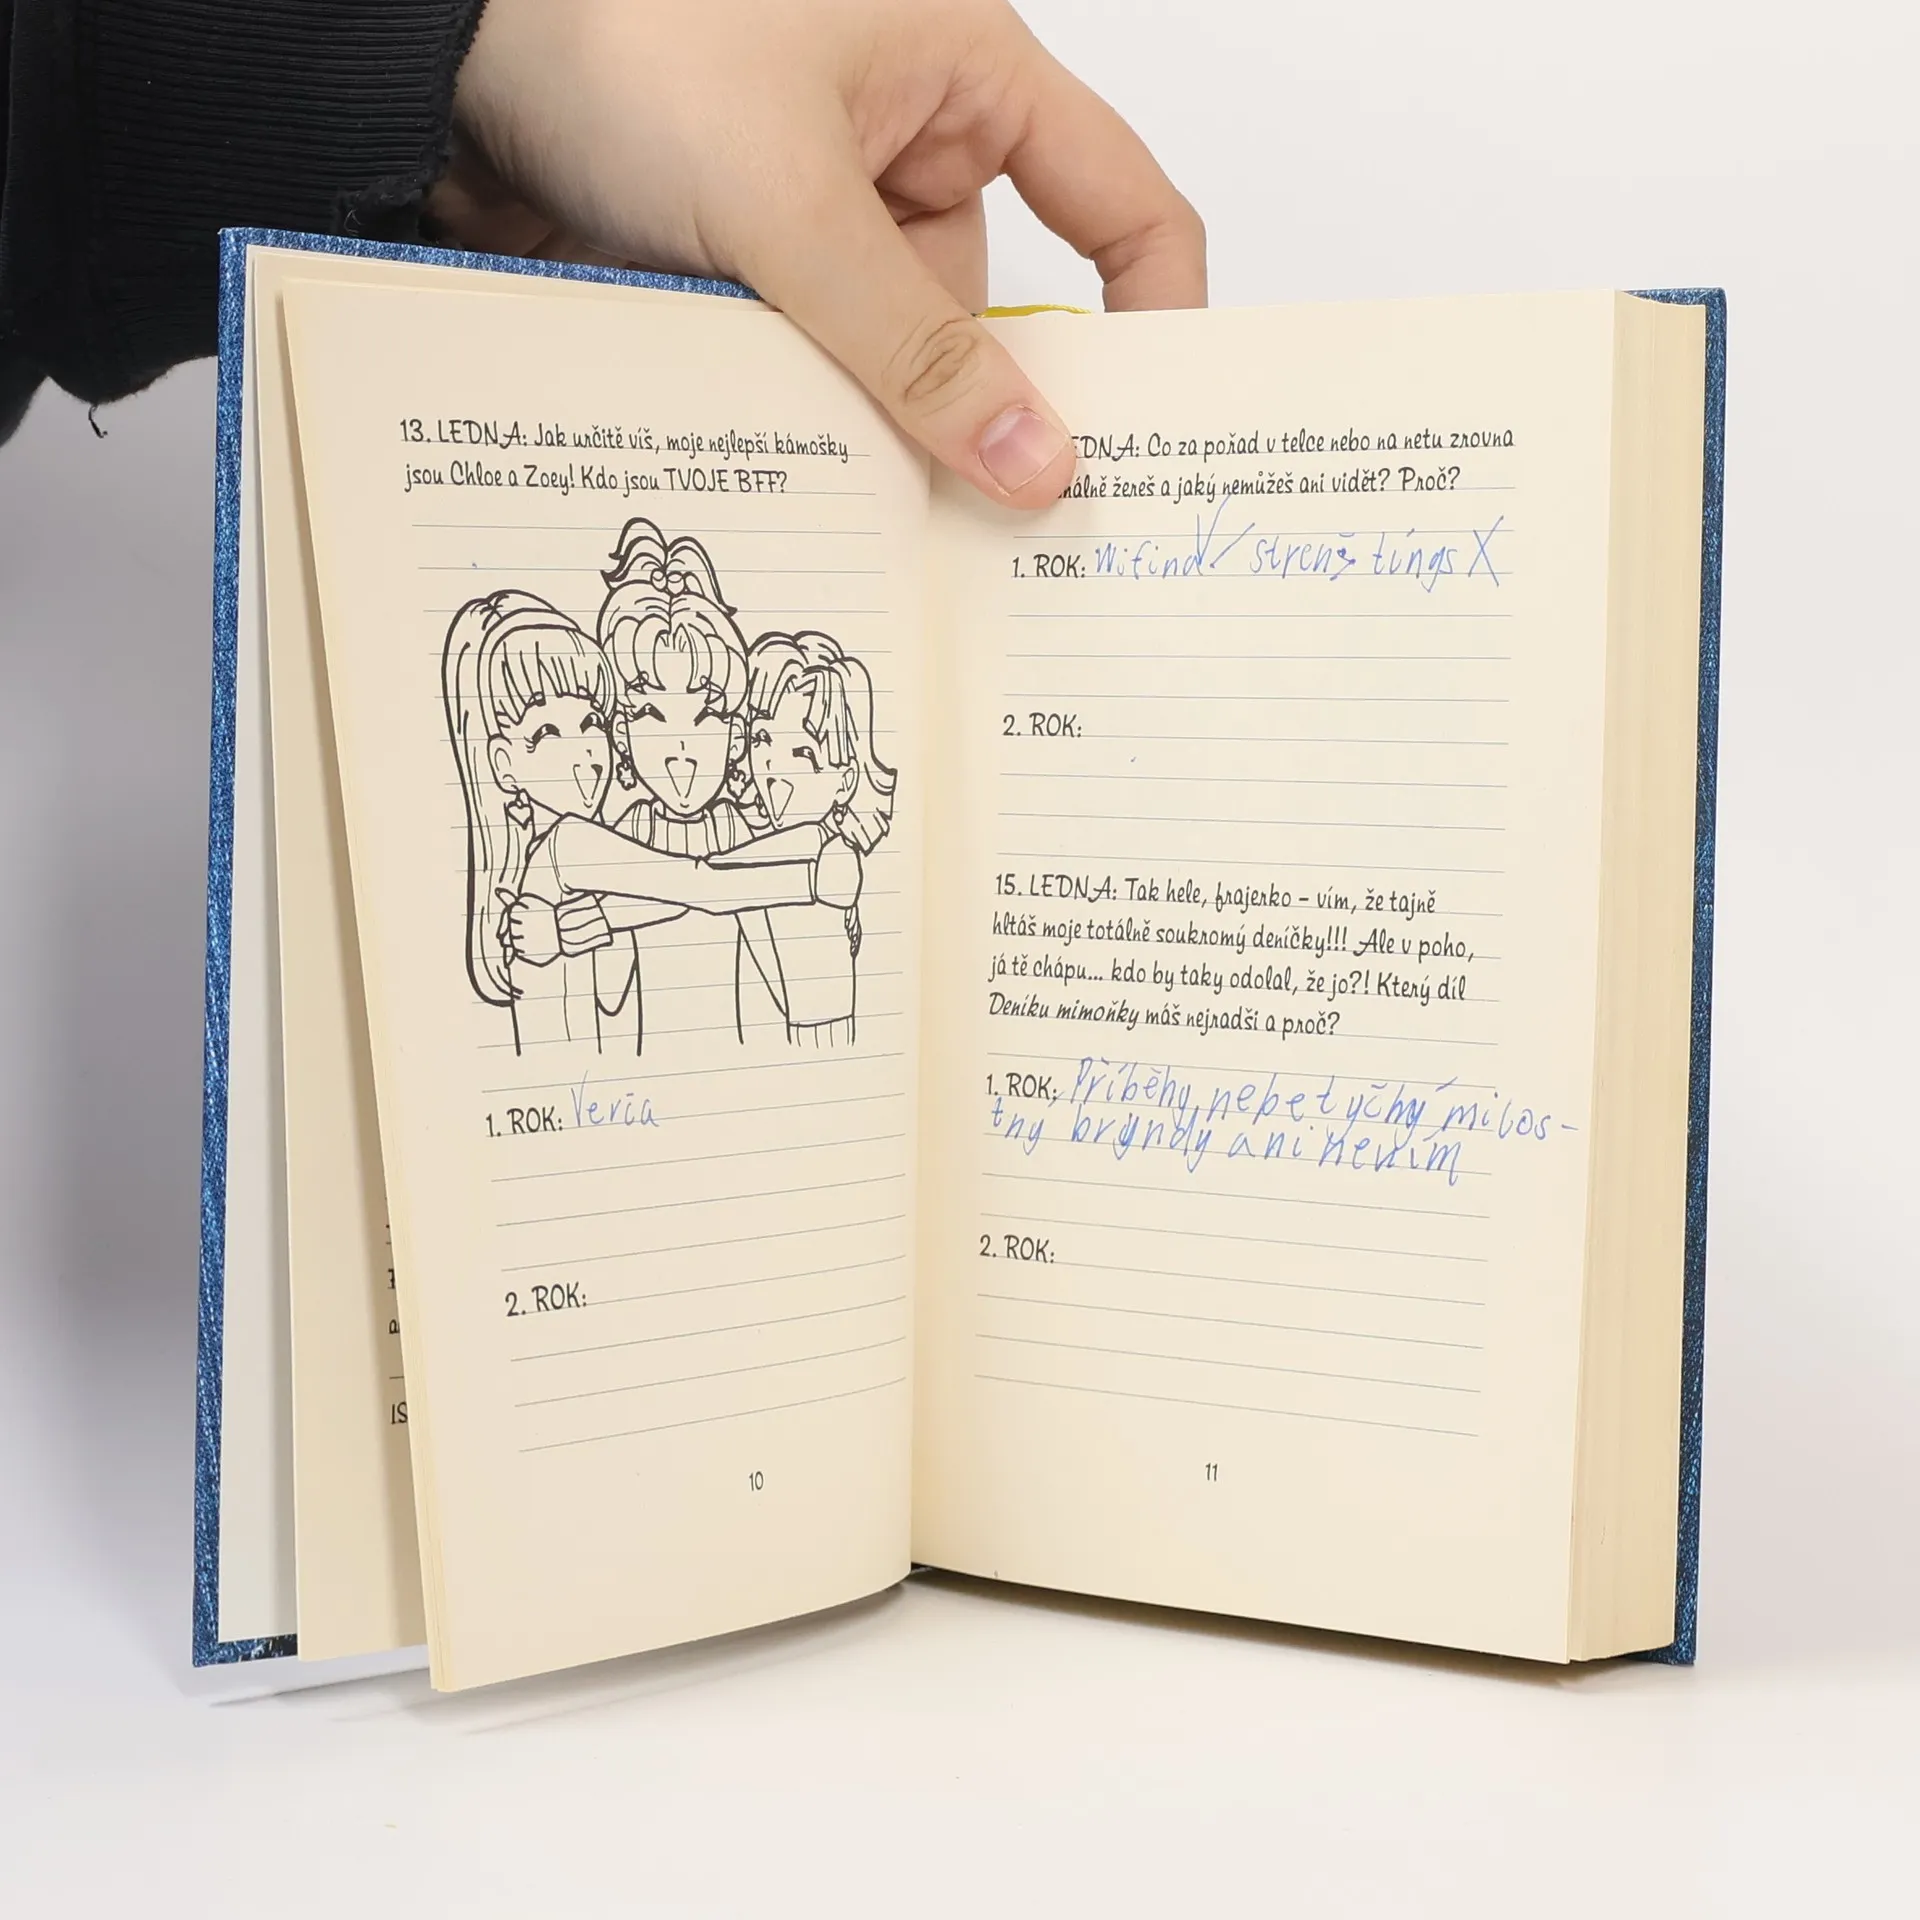 13. LEDNA: Jak určitě víš, moje nejlepší kámošky
jsou Chloe a Zoey! Kdo jsou TVOJE BFF?
1. ROK: Verča
2. ROK:
10
EDNA: Co za pořad v telce nebo na netu zrovna
málně žereš a jaký nemůžeš ani vidět? Proč?
1. ROK: Wifina / strenž tings X
2. ROK:
15. LEDNA: Tak hele, frajerko – vím, že tajně
hltáš moje totálně soukromý deníčky!!! Ale v poho,
já tě chápu... kdo by taky odolal, že jo?! Který díl
Deníku mimoňky máš nejradši a proč?
1. ROK: Příběhy nebetyčný milos-
tný bryndy ani nevím
2. ROK:
11